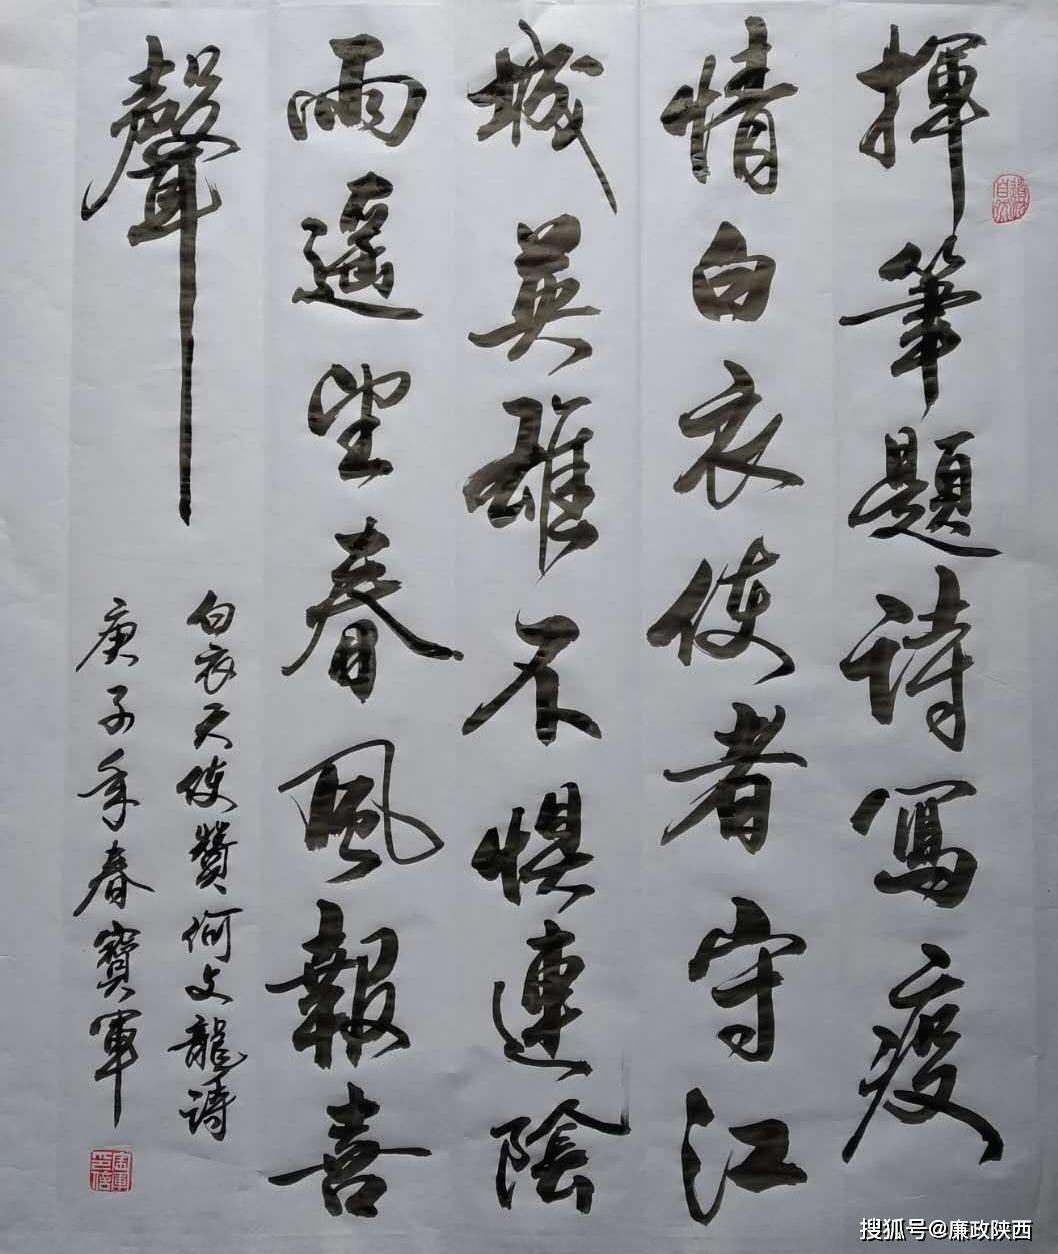 揮筆題詩寫疫
情白衣使者守江
城英雄不懼連陰
雨遥望春風報喜
聲
白衣天使贊何文龍詩
庚子年春寶軍
搜狐号@廉政陕西